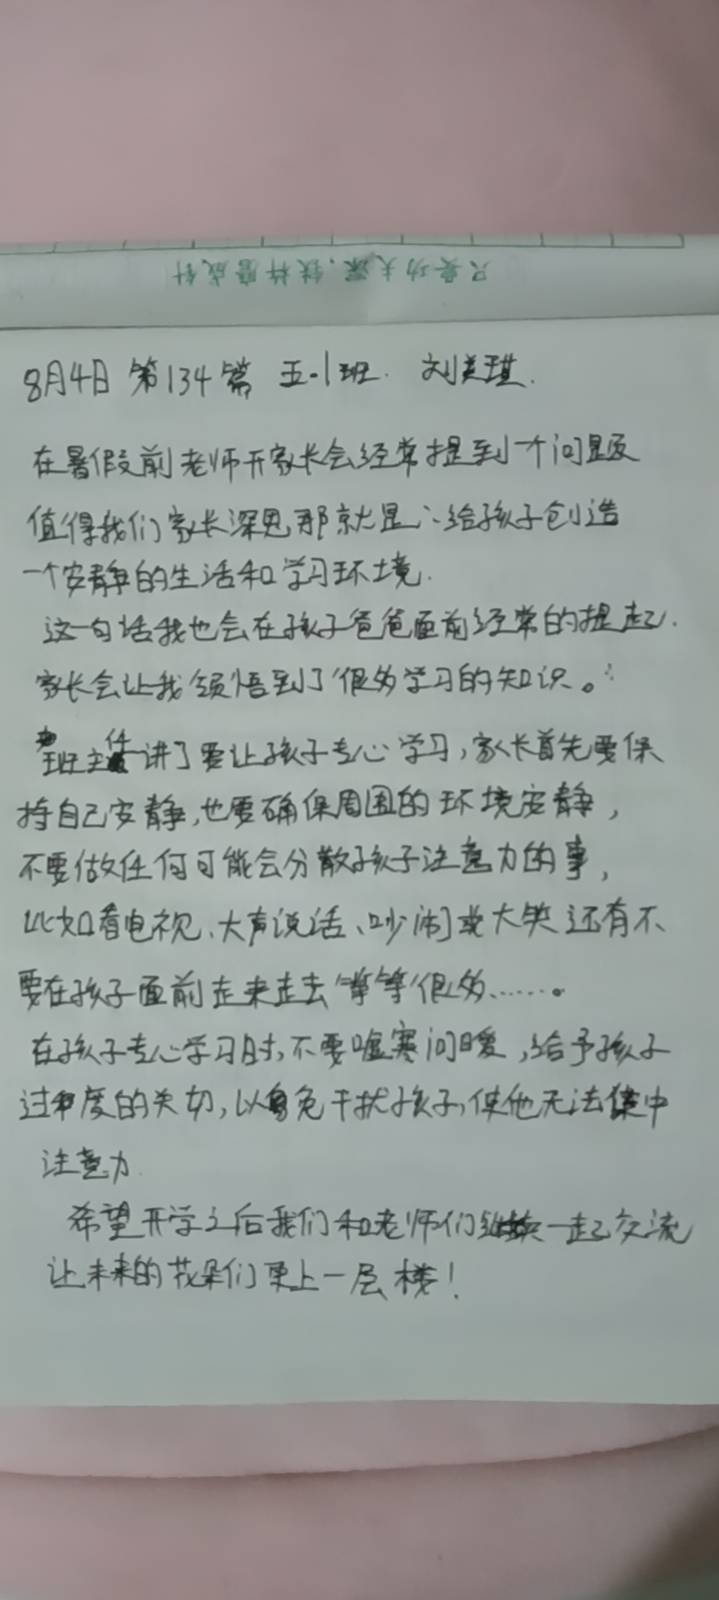 只要功夫深,铁杵磨成针
8月4日 第134篇 五.1班. 刘美琪.
在暑假前老师开家长会经常提到一个问题
值得我们家长深思那就是:给孩子创造
一个安静的生活和学习环境.
这一句话我也会在孩子爸爸面前经常的提起.
家长会让我领悟到了很多学习的知识。
班主任讲了要让孩子专心学习,家长首先要保
持自己安静,也要确保周围的环境安静,
不要做任何可能会分散孩子注意力的事,
比如看电视、大声说话、吵闹或大笑还有不
要在孩子面前走来走去等等很多……。
在孩子专心学习时,不要嘘寒问暖,给予孩子
过度的关切,以免干扰孩子,使他无法集中
注意力.
希望开学之后我们和老师们继续一起交流
让未来的花朵们更上一层楼!